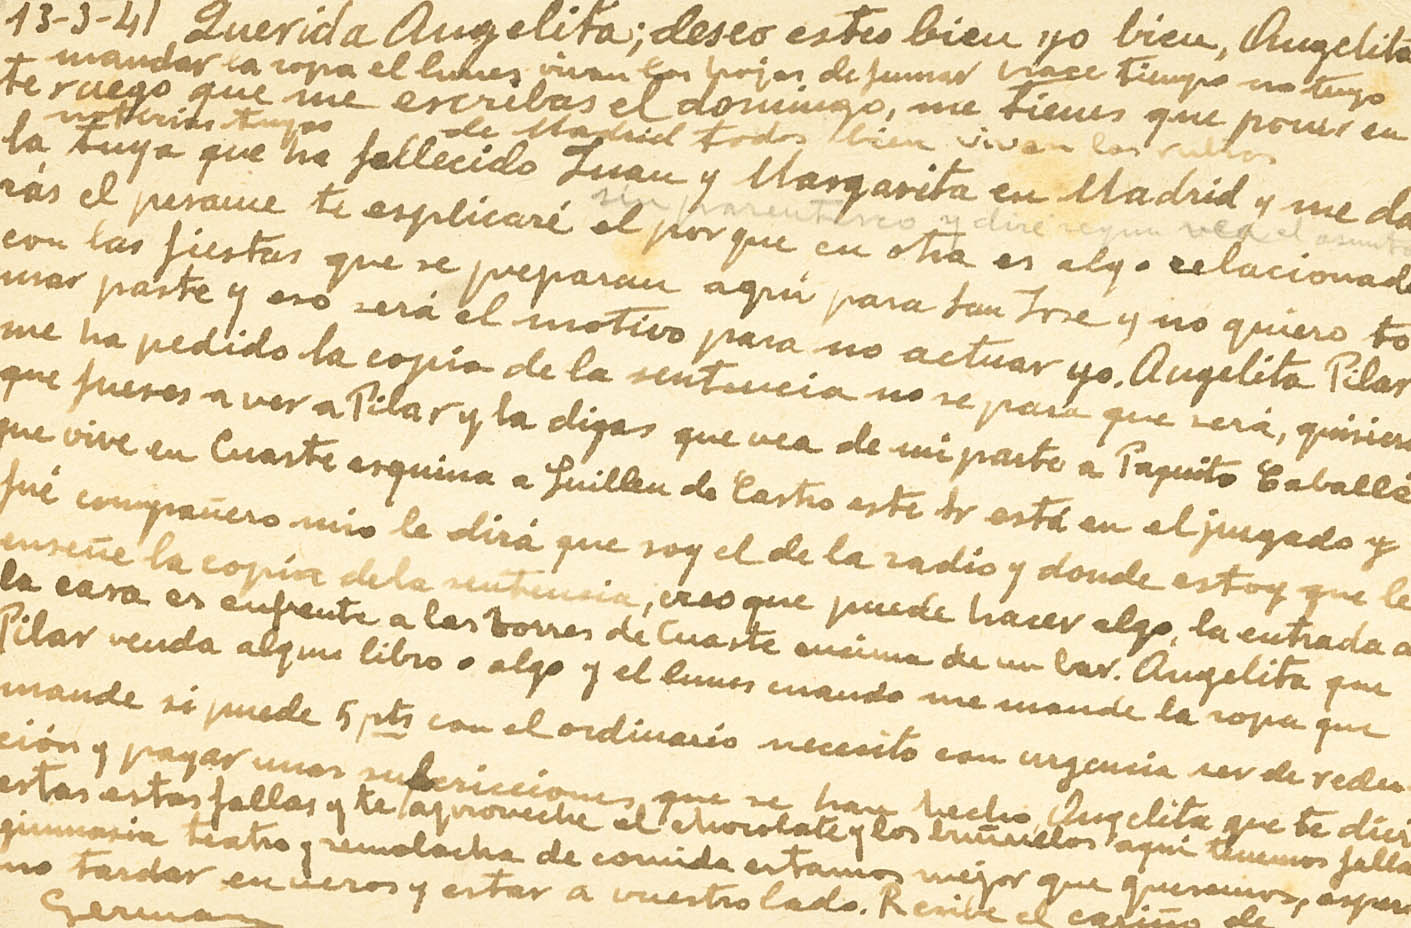 13-3-41 Querida Angelita; deseo estes bien yo bien, Angelita
mandar la ropa el lunes, vivan las hojas de fumar hace tiempo no tengo
te ruego que me escribas el domingo, me tienes que poner en
noticias tuyas de Madrid todos bien vivan los
la tuya que ha fallecido Juan y Margarita en Madrid y me da
sin parentesco y diré segun vea el asunto
rás el pesame te esplicaré el por que en otra es algo relacionado
con las fiestas que se preparan aqui para San Jose y no quiero to
mar parte y eso será el motivo para no actuar yo. Angelita Pilar
me ha pedido la copia de la sentencia no se para que será, quisiera
que fueses a ver a Pilar y la digas que vea de mi parte a Paquito Caballé
que vive en Cuarte esquina a Guillen de Castro este Sr está en el juzgado y
fué compañero mio le dirá que soy el de la radio y donde estoy que le
enseñe la copia de la sentencia, creo que puede hacer algo, la entrada a
la casa es enfrente a las torres de Cuarte encima de un bar. Angelita que
Pilar venda algun libro o algo y el lunes cuando me mande la ropa que
mande si puede 5 pts con el ordinario necesito con urgencia ser de reden
ción y pagar unas subcricciones que se han hecho Angelita que te divi
ertas estas fallas y te aproveche el chocolate y los buñuelos, aqui tenemos falla
gimnasia teatro y remolacha de comida estamos mejor que queremos, espero
no tardar en veros y estar a vuestro lado. Resibe el cariño de
German